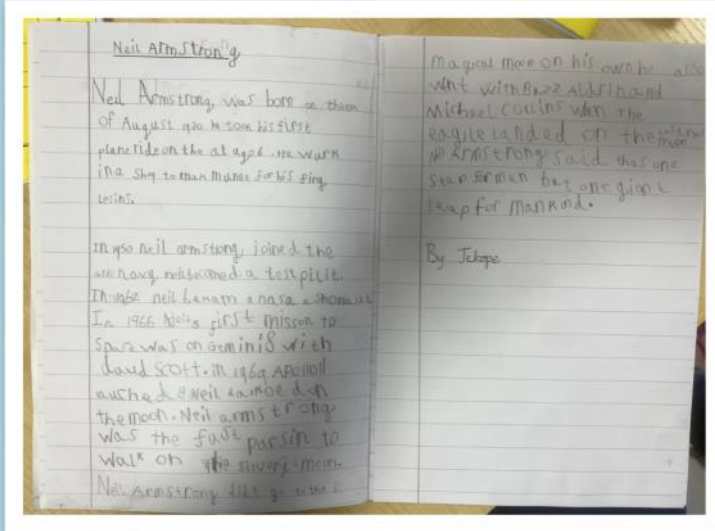 Neil Armstrong
Neil Armstrong, was born on
of August 1930 he took his first
plane ride on the at age 6. He wark
in a Shop to man for his fling
lesins.
In 1950 Neil armstong, joined the
navy. neil becomed a test pilit.
In 1962 neil becam a nasa
In 1966 Neils first misson to
Space was on Gemini8 with
david Scott. in 1969 APollo11
Neil on
the moon. Neil armstrong,
was the fast parsin to
walk on the silvery moon.
Neil Armstrong didt go to the
magical moon on his own he also
wnt with Buzz Aldrin and
Michael Collins when the
eagle landed on the moon
Neil Armstrong said thas one
stap for man but one giant
leap for mankind.
By Tekope